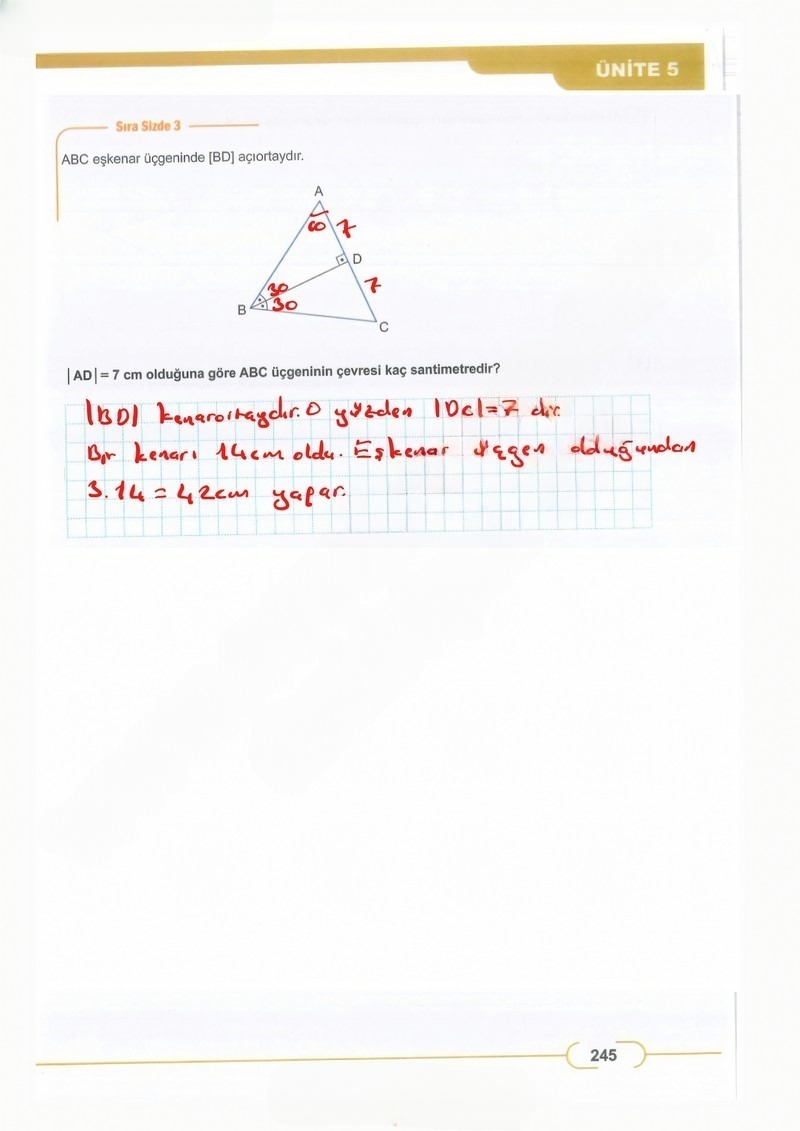 ÜNİTE 5
Sıra Sizde 3
ABC eşkenar üçgeninde [BD] açıortaydır.
A
60 7
D
30 7
B 30
C
|AD| = 7 cm olduğuna göre ABC üçgeninin çevresi kaç santimetredir?
|BD| kenarortaydır. O yüzden |DC|=7 dir.
Bir kenarı 14cm oldu. Eşkenar üçgen olduğundan
3.14 = 42cm yapar.
245